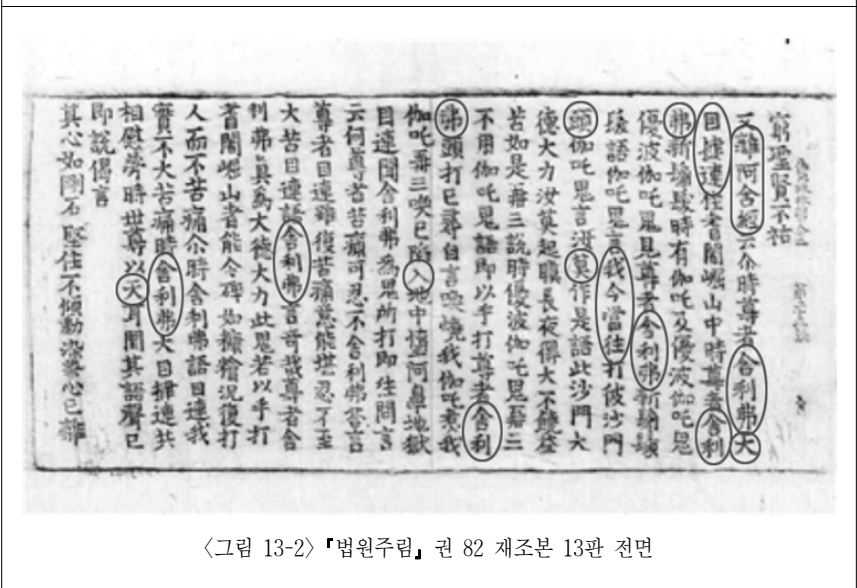 窮聖賢不祐
又雜阿含經云尒時尊者舍利弗大
目揵連住耆闍崛山中時尊者舍利
弗新鬀髮時有伽吒及優波伽吒鬼
優波伽吒鬼見尊者舍利弗新鬀鬚
髮語伽吒鬼言我今當往打彼沙門
頭伽吒鬼言汝莫作是語此沙門大
德大力汝莫起瞋長夜得大不饒益
苦如是再三說時優波伽吒鬼再三
不用伽吒鬼語即以手打尊者舍利
弗頭打已尋自言喚燒我伽吒煮我
伽吒再三喚已陷入地中墮阿鼻地獄
目連聞舍利弗爲鬼所打即往問言
云何尊者苦痛可忍不舍利弗答言
尊者目連雖復苦痛意能堪忍不至
大苦目連語舍利弗言奇哉尊者舍
利弗真爲大德大力此鬼若以手打
耆闍崛山者能令碎如糠糩況復打
人而不苦痛尒時舍利弗語目連我
實不大苦痛時舍利弗大目揵連共
相慰勞時世尊以天耳聞其語聲已
即說偈言
其心如剛石堅住不傾動染著心已離
〈그림 13-2〉『법원주림』 권 82 재조본 13판 전면